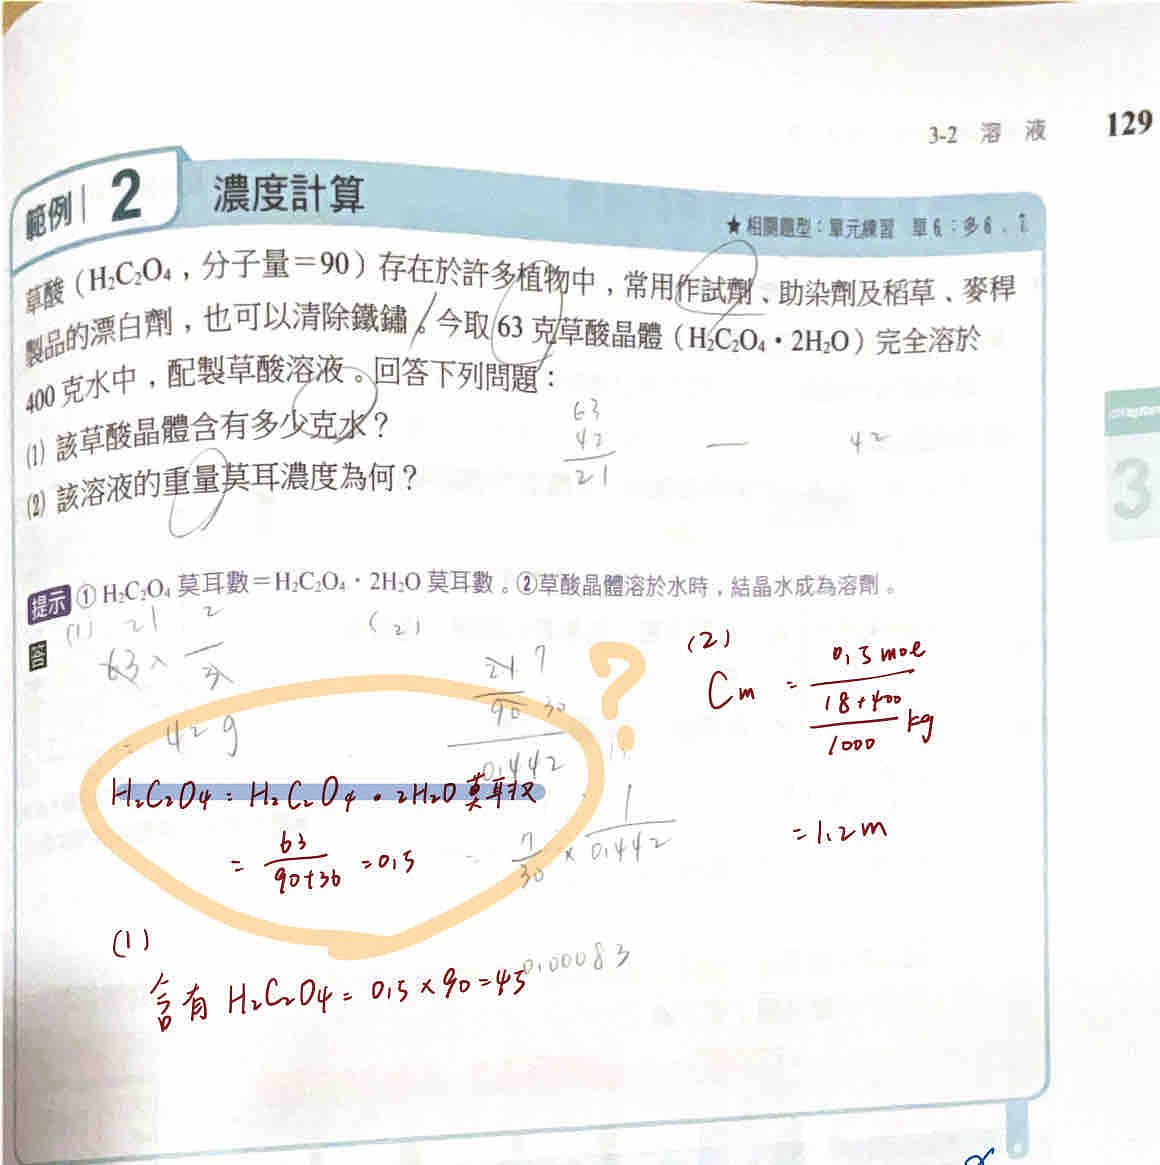 3-2 溶 液 129
範例 2 濃度計算
★相關題型：單元練習 單6；多6、7
草酸（H₂C₂O₄，分子量＝90）存在於許多植物中，常用作試劑、助染劑及稻草、麥稈
製品的漂白劑，也可以清除鐵鏽。今取63克草酸晶體（H₂C₂O₄・2H₂O）完全溶於
400克水中，配製草酸溶液。回答下列問題：
(1) 該草酸晶體含有多少克水？
(2) 該溶液的重量莫耳濃度為何？
63
42
21
— 42
3
提示 ①H₂C₂O₄莫耳數＝H₂C₂O₄・2H₂O莫耳數。②草酸晶體溶於水時，結晶水成為溶劑。
答
(1) 21 2
63×
3
= 42g
(2)
21 7
90 30
0.442
= 7/30 × 1/0.442
0.00083
?
H₂C₂O₄ = H₂C₂O₄・2H₂O 莫耳
= 63/(90+36) = 0.5
(1)
含有 H₂C₂O₄ = 0.5×90=45
(2)
Cm = 0.5 mol
18+400
1000 kg
=1.2m